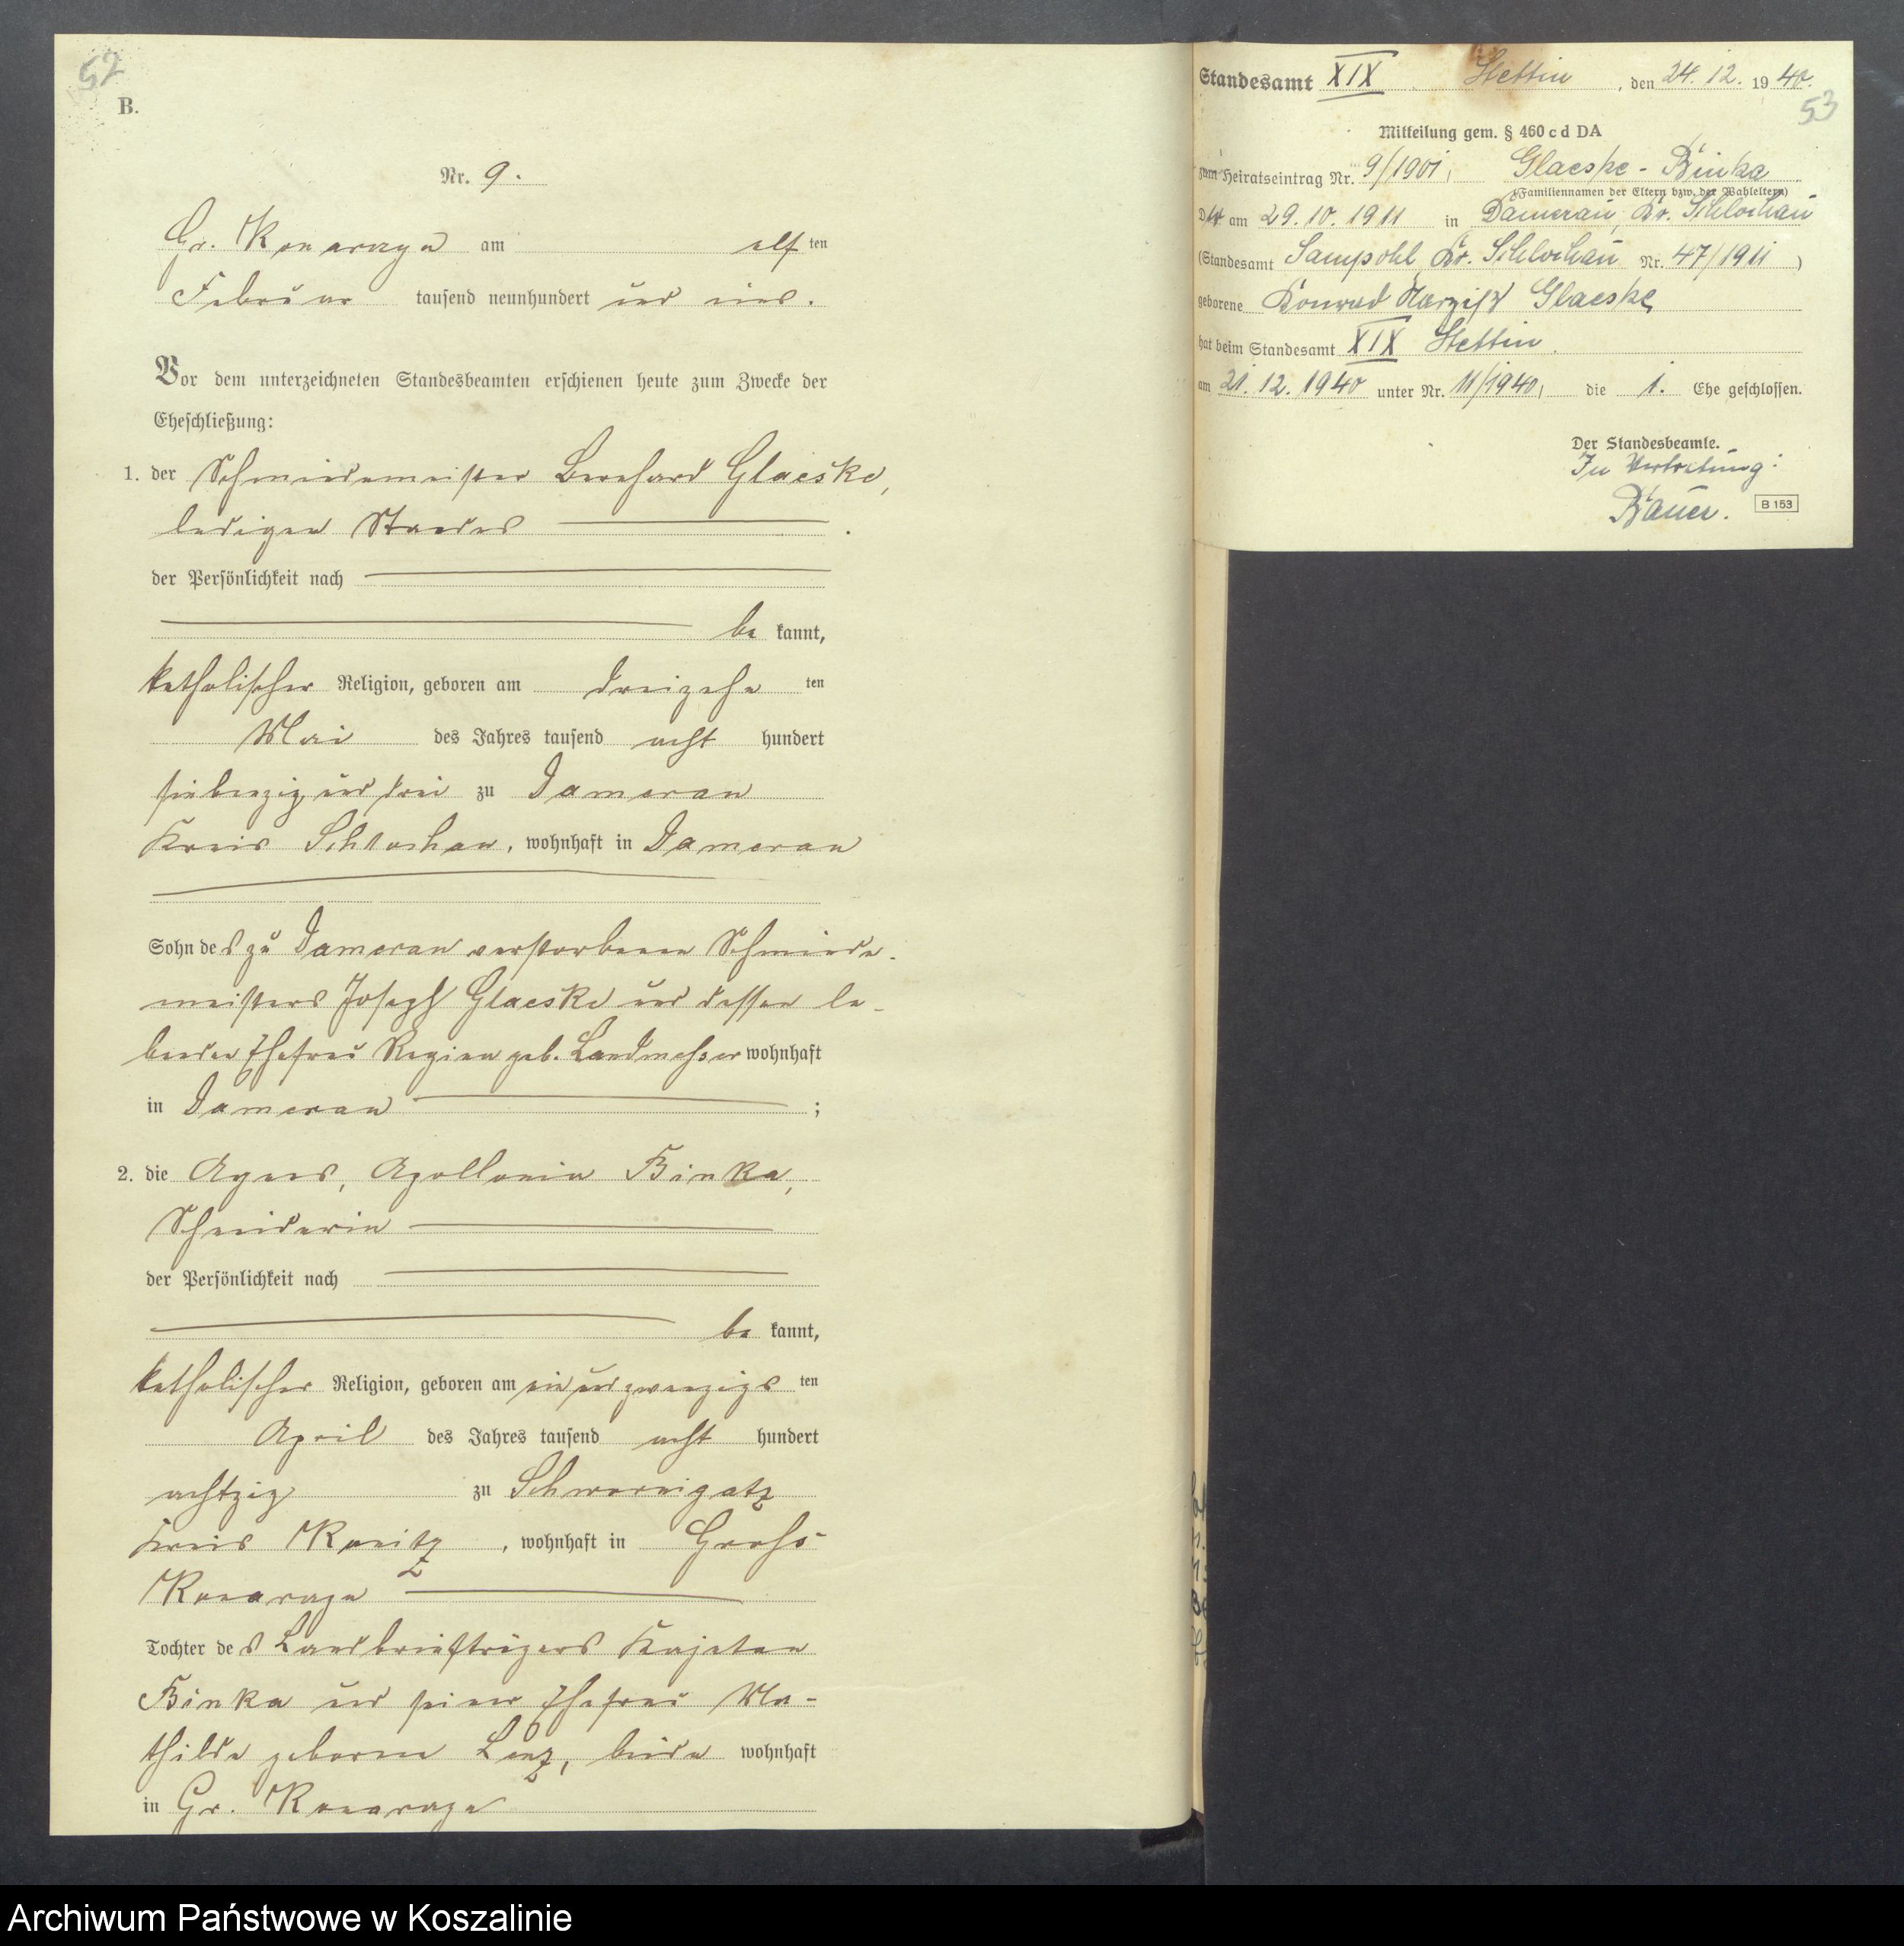 52
B.
Nr. 9.
Gr. Konarczyn am elf ten
Februar tausend neunhundert und eins.
Vor dem unterzeichneten Standesbeamten erschienen heute zum Zwecke der
Eheschließung:
1. der Schmiedemeister Bernhard Glaeske,
ledigen Standes
der Persönlichkeit nach
be kannt,
katholischer Religion, geboren am dreizehn ten
Mai des Jahres tausend acht hundert
siebenzig und drei zu Damerau
Kreis Schlochau, wohnhaft in Damerau
Sohn des zu Damerau verstorbenen Schmiede-
meisters Joseph Glaeske und dessen le-
benden Ehefrau Regina geb. Landmesser wohnhaft
in Damerau ;
2. die Agnes, Apollonia Binka,
Schneiderin
der Persönlichkeit nach
be kannt,
katholischer Religion, geboren am ein und zwanzigs ten
April des Jahres tausend acht hundert
achtzig zu Schwornigatz
Kreis Konitz, wohnhaft in Gross
Konarczyn
Tochter des Landbriefträgers Kajetan
Binka und seiner Ehefrau Ma-
thilde geborne Lenz, beide wohnhaft
in Gr. Konarczyn
Standesamt XIX Stettin, den 24. 12. 1940.
53
Mitteilung gem. § 460 c d DA
zum Heiratseintrag Nr. 9/1901, Glaeske - Binka
(Familiennamen der Eltern bzw. der Wahleltern)
Der am 29. 10. 1911 in Damerau, Kr. Schlochau
(Standesamt Sampohl, Kr. Schlochau Nr. 47/1911)
geborene Konrad Narziß Glaeske
hat beim Standesamt XIX Stettin.
am 21. 12. 1940 unter Nr. 11/1940, die 1. Ehe geschlossen.
Der Standesbeamte.
In Vertretung:
Bauer.
B 153
Archiwum Państwowe w Koszalinie